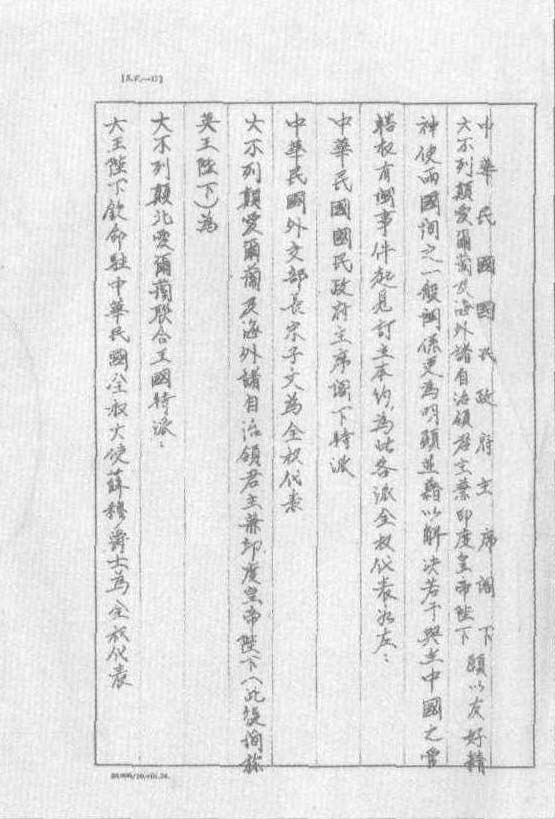 [S.F.—17]
中華民國國民政府主席閣下
大不列顛愛爾蘭及海外諸自治領君主兼印度皇帝陛下願以友好精
神使兩國間之一般關係更為明顯並藉以解決若干與在中國之管
轄权有關事件起見訂立本約,為此各派全权代表如左:
中華民國國民政府主席閣下特派
中華民國外交部長宋子文為全权代表
大不列顛愛爾蘭及海外諸自治領君主兼印度皇帝陛下(此後簡稱
英王陛下)為
大不列顛北愛爾蘭联合王國特派:
大王陛下欽命駐中華民國全权大使薛穆爵士為全权代表